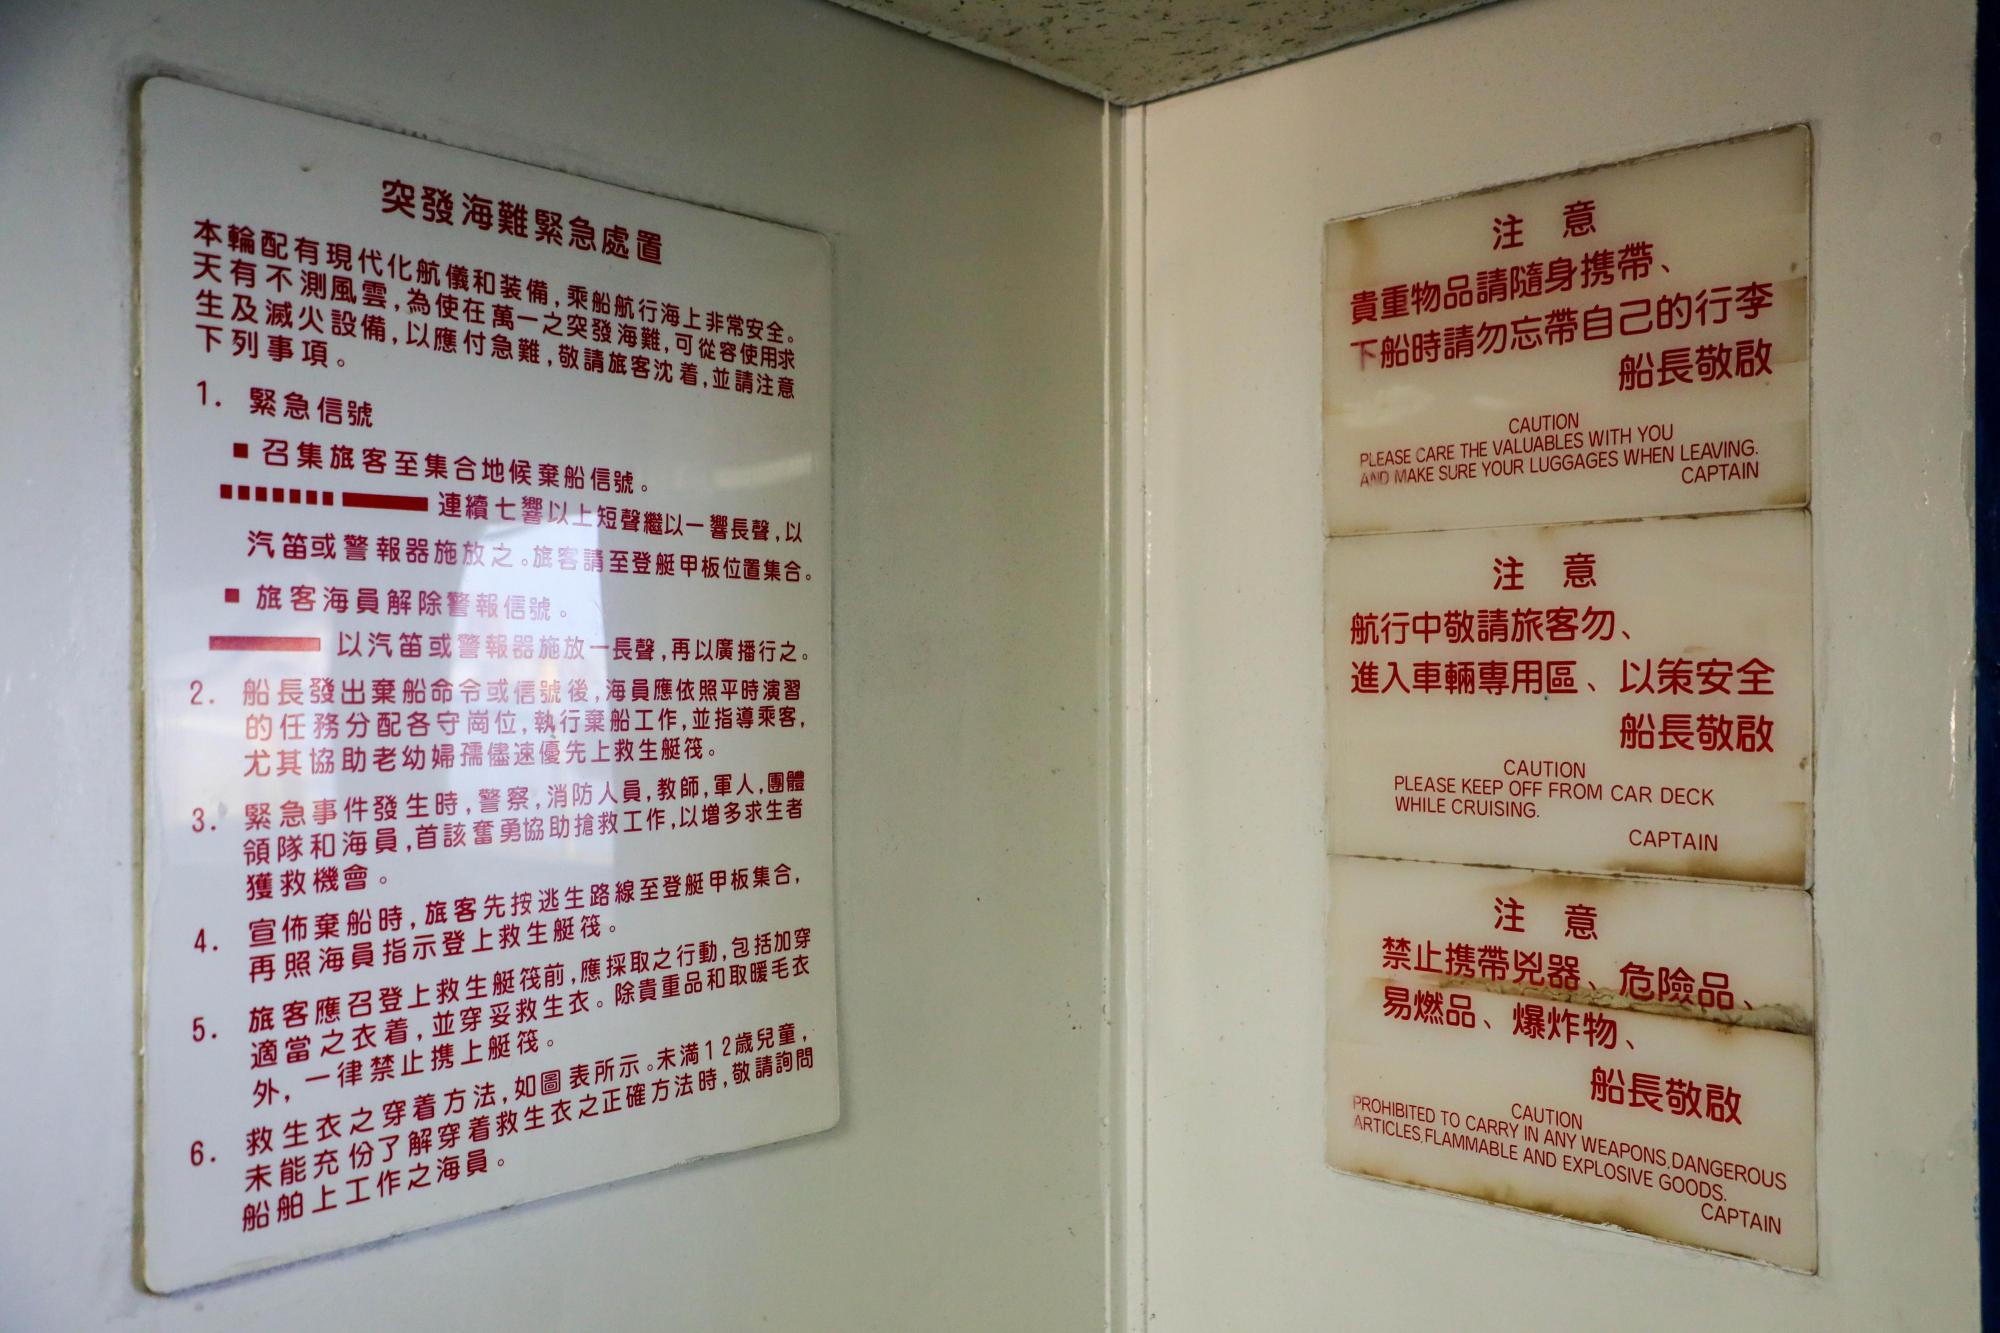 突發海難緊急處置
本輪配有現代化航儀和装備,乘船航行海上非常安全。
天有不測風雲,為使在萬一之突發海難,可從容使用求
生及滅火設備,以應付急難,敬請旅客沈着,並請注意
下列事項。
1. 緊急信號
■ 召集旅客至集合地候棄船信號。
連續七響以上短聲繼以一響長聲,以
汽笛或警報器施放之。旅客請至登艇甲板位置集合。
■ 旅客海員解除警報信號。
以汽笛或警報器施放一長聲,再以廣播行之。
2. 船長發出棄船命令或信號後,海員應依照平時演習
的任務分配各守崗位,執行棄船工作,並指導乘客,
尤其協助老幼婦孺儘速優先上救生艇筏。
3. 緊急事件發生時,警察,消防人員,教師,軍人,團體
領隊和海員,首該奮勇協助搶救工作,以增多求生者
獲救機會。
4. 宣佈棄船時,旅客先按逃生路線至登艇甲板集合,
再照海員指示登上救生艇筏。
5. 旅客應召登上救生艇筏前,應採取之行動,包括加穿
適當之衣着,並穿妥救生衣。除貴重品和取暖毛衣
外,一律禁止携上艇筏。
6. 救生衣之穿着方法,如圖表所示。未満12歳兒童,
未能充份了解穿着救生衣之正確方法時,敬請詢問
船舶上工作之海員。
注 意
貴重物品請隨身携帶、
下船時請勿忘帶自己的行李
船長敬啟
CAUTION
PLEASE CARE THE VALUABLES WITH YOU
AND MAKE SURE YOUR LUGGAGES WHEN LEAVING.
CAPTAIN
注 意
航行中敬請旅客勿、
進入車輛専用區、以策安全
船長敬啟
CAUTION
PLEASE KEEP OFF FROM CAR DECK
WHILE CRUISING.
CAPTAIN
注 意
禁止携帶兇器、危險品、
易燃品、爆炸物、
船長敬啟
CAUTION
PROHIBITED TO CARRY IN ANY WEAPONS,DANGEROUS
ARTICLES,FLAMMABLE AND EXPLOSIVE GOODS.
CAPTAIN